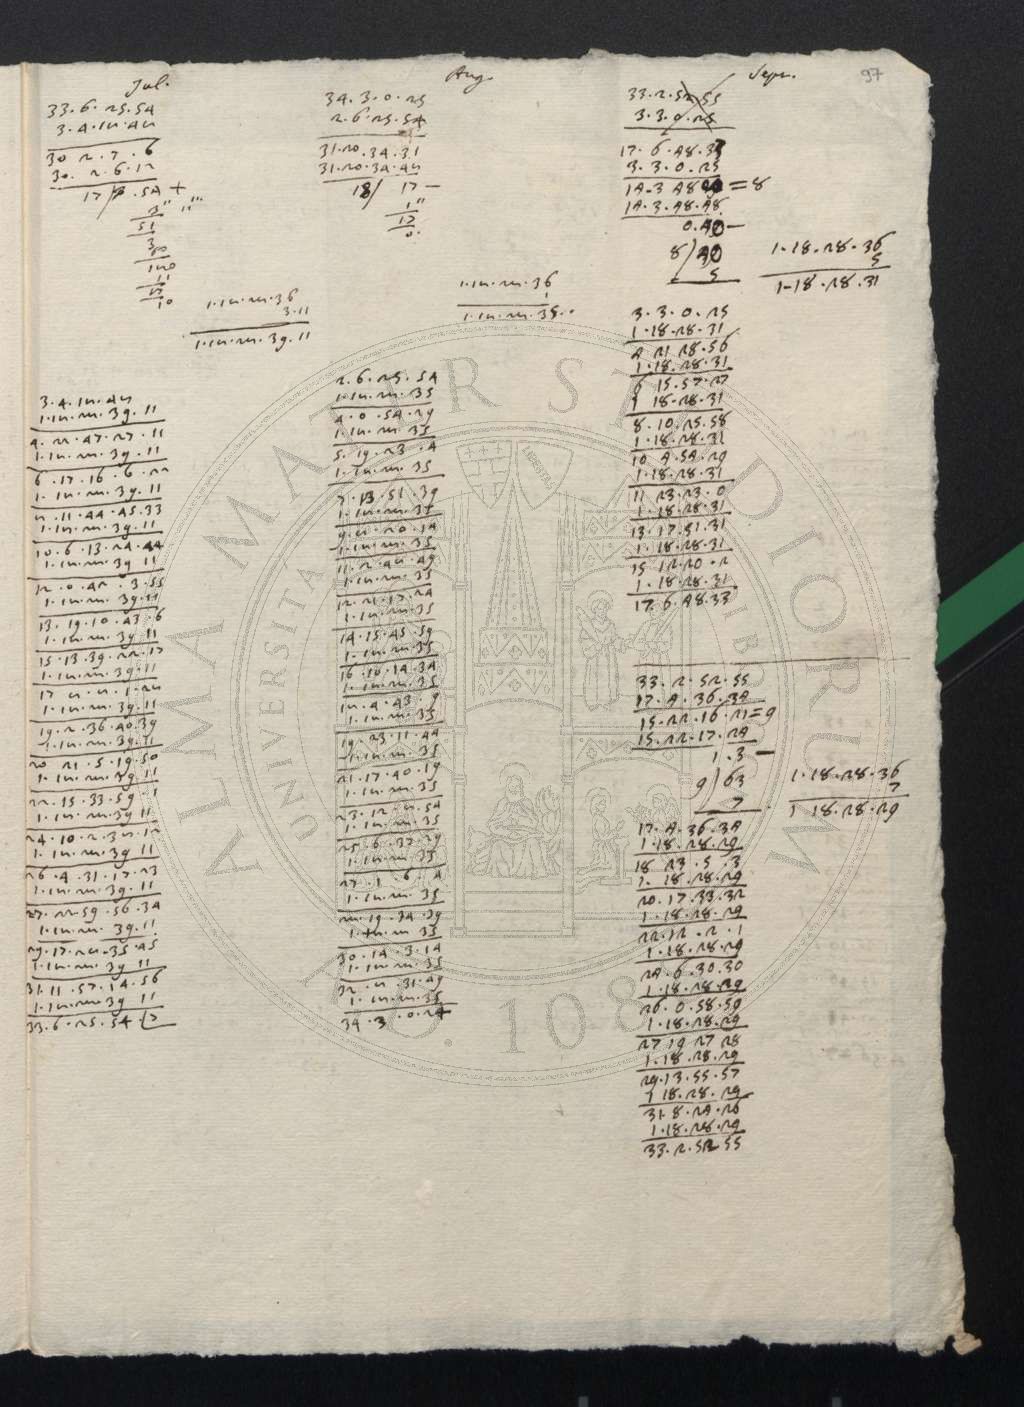 97
Jul.
33.6.25.54
3.4.18.48
30 2.7.6
30.2.6.12
17/ .54 +
3"
51
3
120
11
10
1.18.28.36
3.11
1.18.28.39.11
3.4.18.48
1.18.28.39.11
4.22.47.27.11
1.18.28.39.11
6.17.16.6.22
1.18.28.39.11
8.11.44.45.33
1.18.28.39.11
10.6.13.24.44
1.18.28.39 11
12.0.42.3.55
1.18.28.39.11
13.19.10.43.6
1.18.28.39.11
15.13.39.22.17
1.18.28.39.11
17 8.8.1.28
1.18.28.39.11
19.2.36.40.39
1.18.28.39.11
20 21.5.19.50
1.18.28.39 11
22.15.33.59.1
1.18.28.39 11
24.10.2.38.12
1.18.28.39 11
26.4.31.17.23
1.18.28.39.11
27.22.59.56.34
1.18.28.39.11
29.17.28.35.45
1.18.28.39 11
31.11.57.14.56
1.18.28.39 11
33.6.25.54 (7
Aug.
34.3.0.25
2.6.25.54
31.20.34.31
31.20.34.48
18/ 17 –
1"
17
0.
1.18.28.36
1
1.18.28.35.
2.6.25.54
1.18.28.35
4.0.54.29
1.18.28.35
5.19.23.4
1.18.28.35
7.13.51.39
1.18.28.35
9.8.20.14
1.18.28.35
11.2.48.49
1.18.28.35
12.21.17.24
1.18.28.35
14.15.45.59
1.18.28.35
16.10.14.34
1.18.28.35
18.4.43.9
1.18.28.35
19.23.11.44
1.18.28.35
21.17.40.19
1.18.28.35
23.12.8.54
1.18.28.35
25.6.37.29
1.18.28.35
27.1.6.4
1.18.28.35
28.19.34.39
1.18.28 35
30.14.3.14
1.18.28.35
32.8.31.49
1.18.28.35
34.3.0.24
Sept.
33.2.52.55
3.3.0.25
17.6.48.33
3.3.0.25
14.3 48 = 8
14.3.48.48
0.40 –
8/40
5
1.18.28.36
5
1.18.28.31
3.3.0.25
1.18.28.31
4 21 28.56
1.18.28.31
6 15.57.27
1 18.28.31
8.10.25.58
1.18.28.31
10 4.54.29
1.18.28.31
11 23.23.0
1.18.28.31
13.17.51.31
1.18.28.31
15 12.20.2
1.18.28.31
17.6.48.33
33.2.52.55
17.4.36.34
15.22.16.21=9
15.22.17.24
1.3 –
9/63
7
1.18.28.36
7
1 18.28.29
17.4.36.34
1.18.28.29
18 23.5.3
1.18.28.29
20.17.33.32
1.18.28.29
22.12.2.1
1.18.28.29
24.6.30.30
1.18.28.29
26.0.58.59
1.18.28.29
27 19 27 28
1.18.28.29
29.13.55.57
1 18.28.29
31.8.24.26
1.18.28.29
33.2.52 55
ALMA MATER STUDIORUM
UNIVERSITA
1088